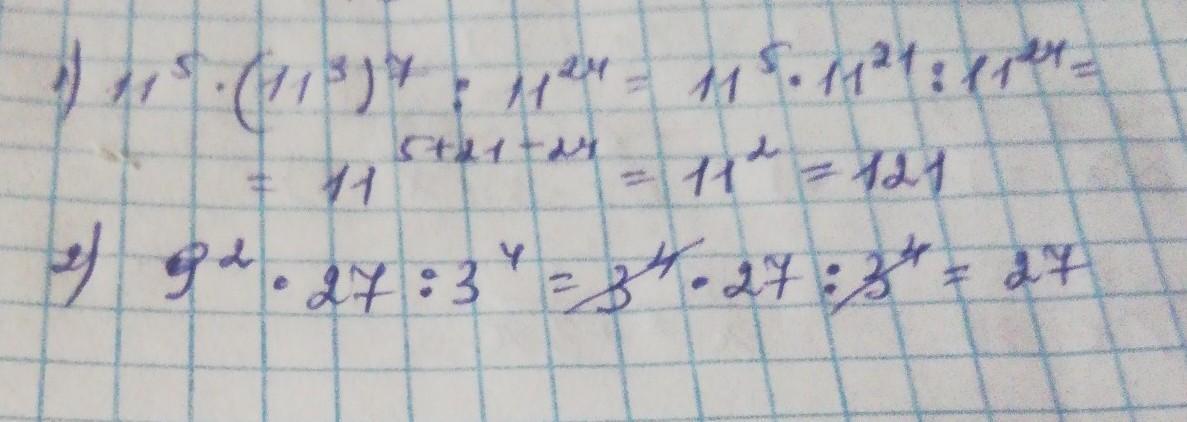 1) 11⁵ · (11³)⁷ : 11²⁴ = 11⁵ · 11²¹ : 11²⁴ =
= 11⁵⁺²¹⁻²⁴ = 11² = 121
2) 9² · 27 : 3⁴ = 3⁴ · 27 : 3⁴ = 27